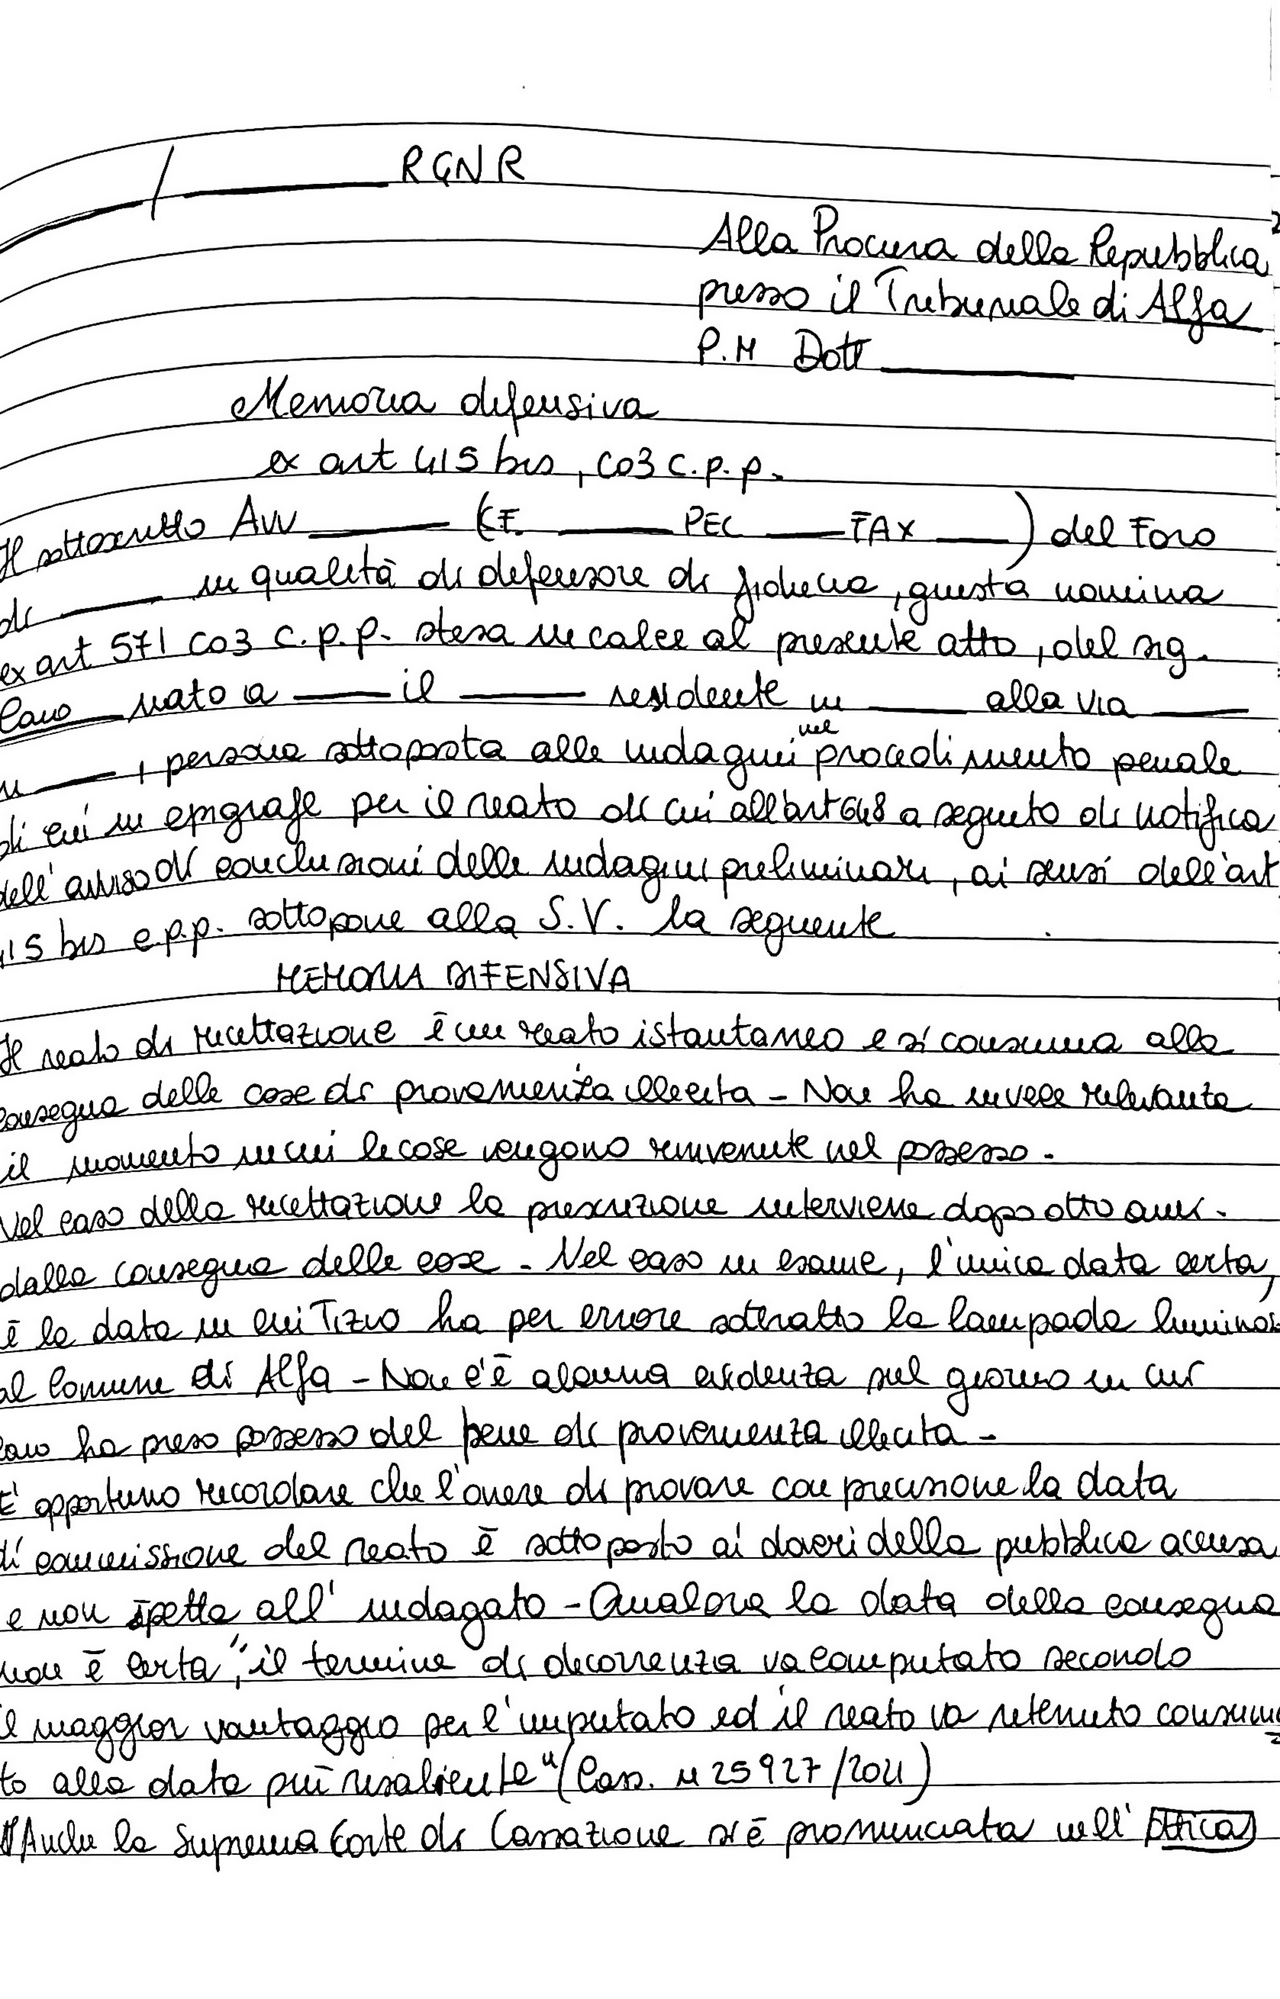 / RGNR
Alla Procura della Repubblica
presso il Tribunale di Alfa
P.M Dott
Memoria difensiva
ex art 415 bis, co3 c.p.p.
Il sottoscritto Avv (CF. PEC FAX ) del Foro
di in qualità di difensore di fiducia, giusta nomina
ex art 571 co3 c.p.p. stesa in calce al presente atto, del sig.
Caio nato a il residente in alla via
n , persona sottoposta alle indagini nel procedimento penale
di cui in epigrafe per il reato di cui all'art 648 a seguito di notifica
dell'avviso di conclusioni delle indagini preliminari, ai sensi dell'art
415 bis c.p.p. sottopone alla S.V. la seguente
MEMORIA DIFENSIVA
Il reato di ricettazione è un reato istantaneo e si consuma alla
consegna delle cose di provenienza illecita - Non ha invece rilevanza
il momento in cui le cose vengono rinvenute nel possesso.
Nel caso della ricettazione la prescrizione interviene dopo otto anni.
dalla consegna delle cose - Nel caso in esame, l'unica data certa,
è la data in cui Tizio ha per errore sottratto la lampada luminos
al Comune di Alfa - Non c'è alcuna evidenza sul giorno in cui
Caio ha preso possesso del bene di provenienza illecita -
E' opportuno ricordare che l'onere di provare con precisione la data
di commissione del reato è sottoposto ai doveri della pubblica accusa
e non spetta all'indagato - Qualora la data della consegna
non è certa, "il termine di decorrenza va computato secondo
il maggior vantaggio per l'imputato ed il reato va ritenuto consuma
to alla data più risalente" (Cass. n 25927/2021)
Anche la Suprema Corte di Cassazione si è pronunciata nell'ottica